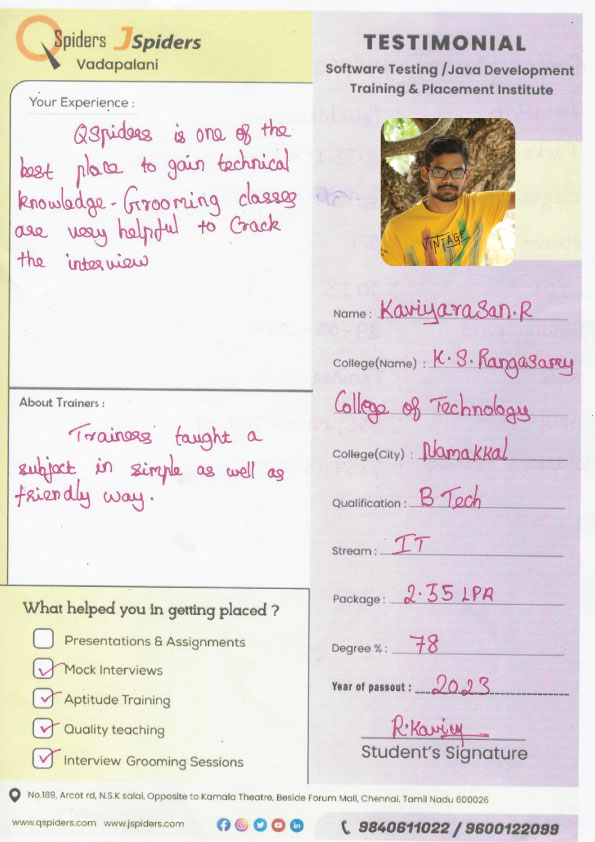 QSpiders JSpiders
Vadapalani
Your Experience :
QSpiders is one of the
best place to gain technical
knowledge. Grooming classes
are very helpful to crack
the interview
About Trainers :
Trainers taught a
subject in simple as well as
friendly way.
What helped you in getting placed ?
Presentations & Assignments
Mock Interviews
Aptitude Training
Quality teaching
Interview Grooming Sessions
TESTIMONIAL
Software Testing /Java Development
Training & Placement Institute
VINTAGE
Name : Kaviyarasan.R
College(Name) : K.S.Rangasamy
College of Technology
College(City) : Namakkal
Qualification : B Tech
Stream : IT
Package : 2.35 LPA
Degree % : 78
Year of passout : 2023
R.Kaviy
Student's Signature
No.189, Arcot rd, N.S.K salai, Opposite to Kamala Theatre, Beside Forum Mall, Chennai, Tamil Nadu 600026
www.qspiders.com www.jspiders.com
9840611022 / 9600122099